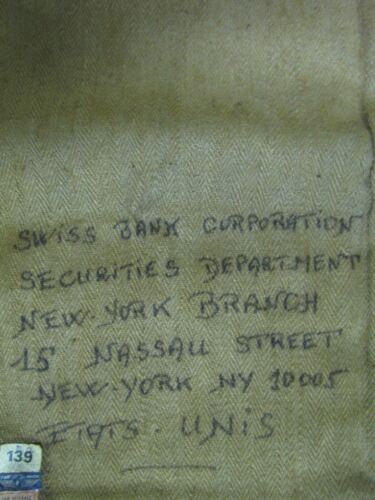 SWISS BANK CORPORATION
SECURITIES DEPARTMENT
NEW-YORK BRANCH
15 NASSAU STREET
NEW-YORK NY 10005
ETATS-UNIS
139